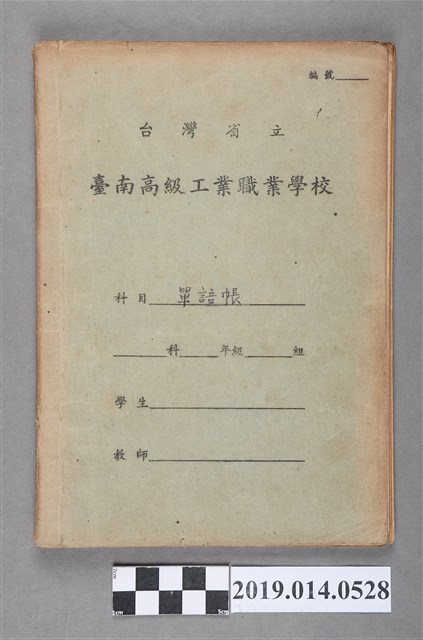 編號
台灣省立
臺南高級工業職業學校
科目 單語帳
科 年級 組
學生
教師
2cm
1cm 5cm
2019.014.0528